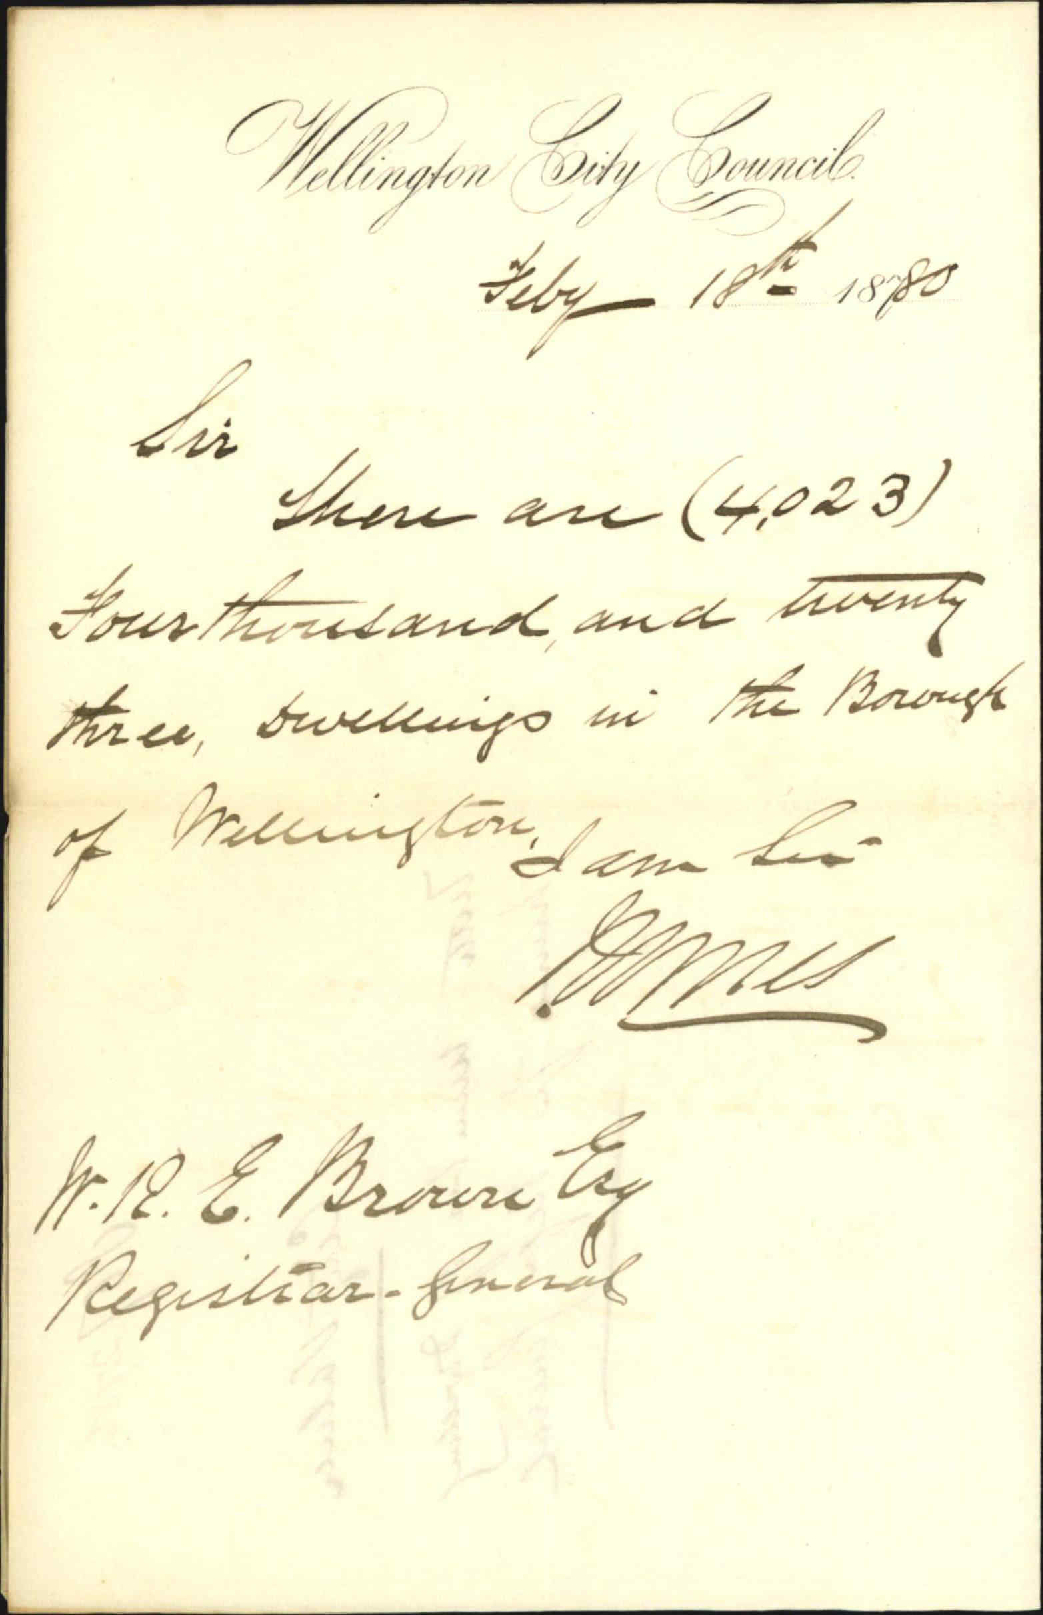 Wellington City Council.
Feby 18th 1880
Sir
There are (4,023)
Four thousand, and twenty
three, Dwellings in the Borough
of Wellington,
I am Sir
W. R. E. Brown Esq
Registrar-General